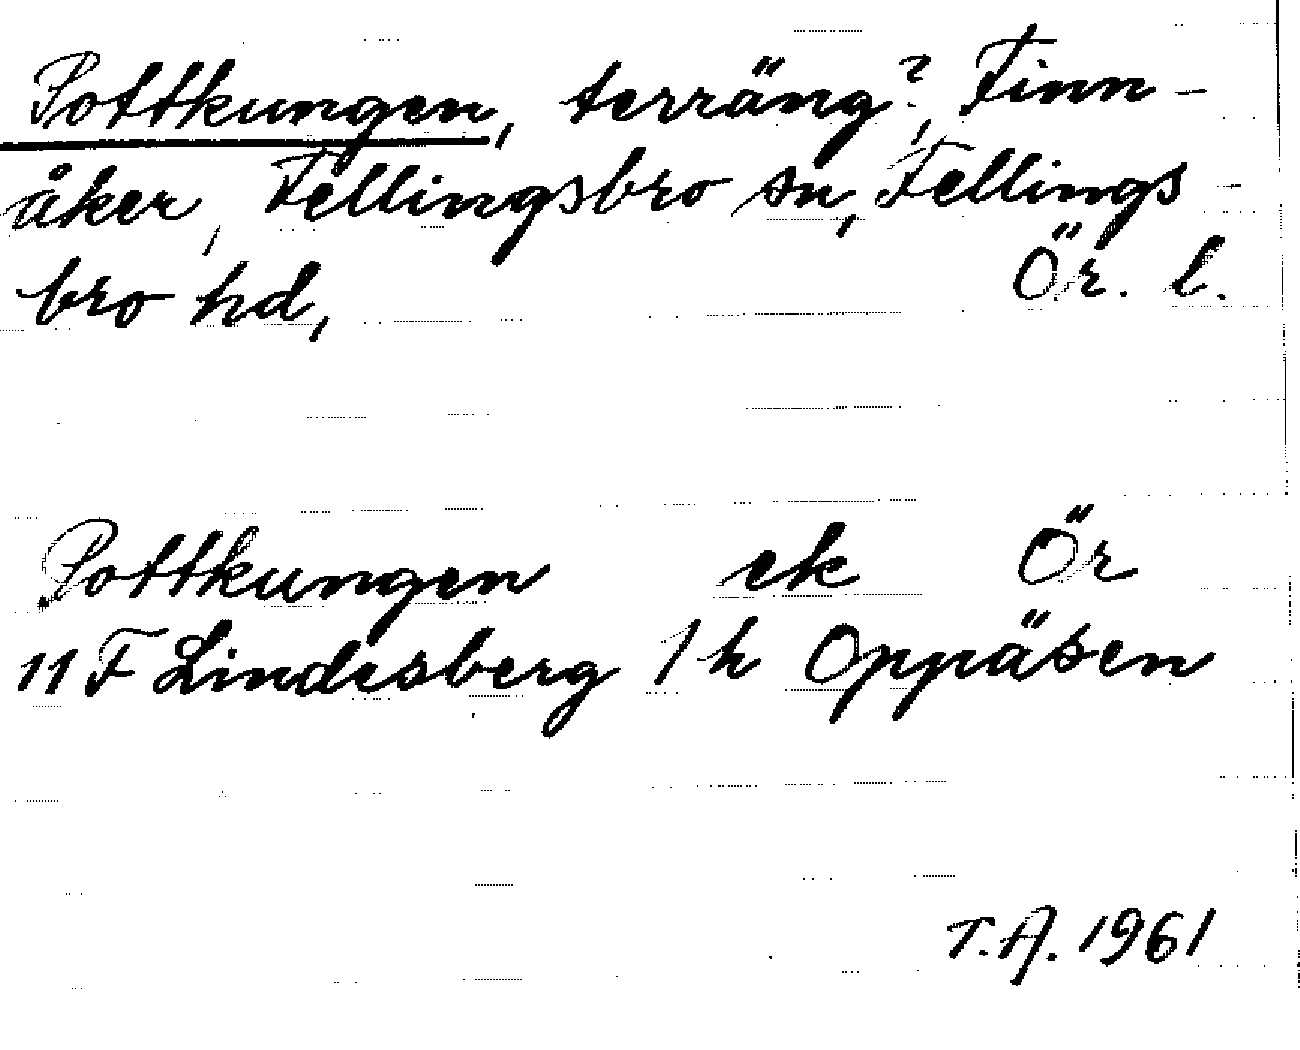 Pottkungen, terräng?, Finn-
åker, Fellingsbro sn, Fellings-
bro hd, Ör. l.
Pottkungen ek Ör
11 F Lindesberg 1 h Oppåsen
T.A. 1961